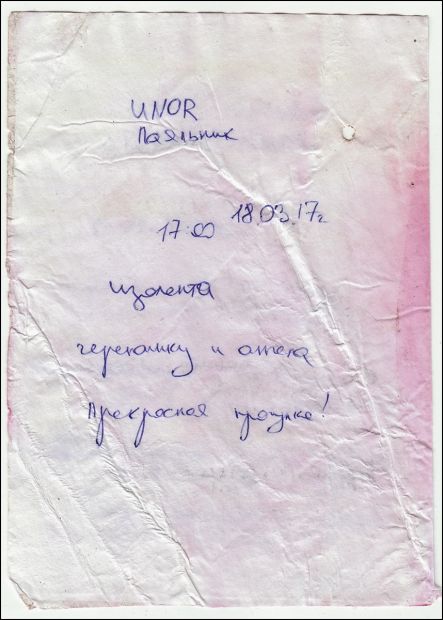 UNOR
Паяльник
18.03.17г.
17:00
изолента
и
Прекрасная прогулка!